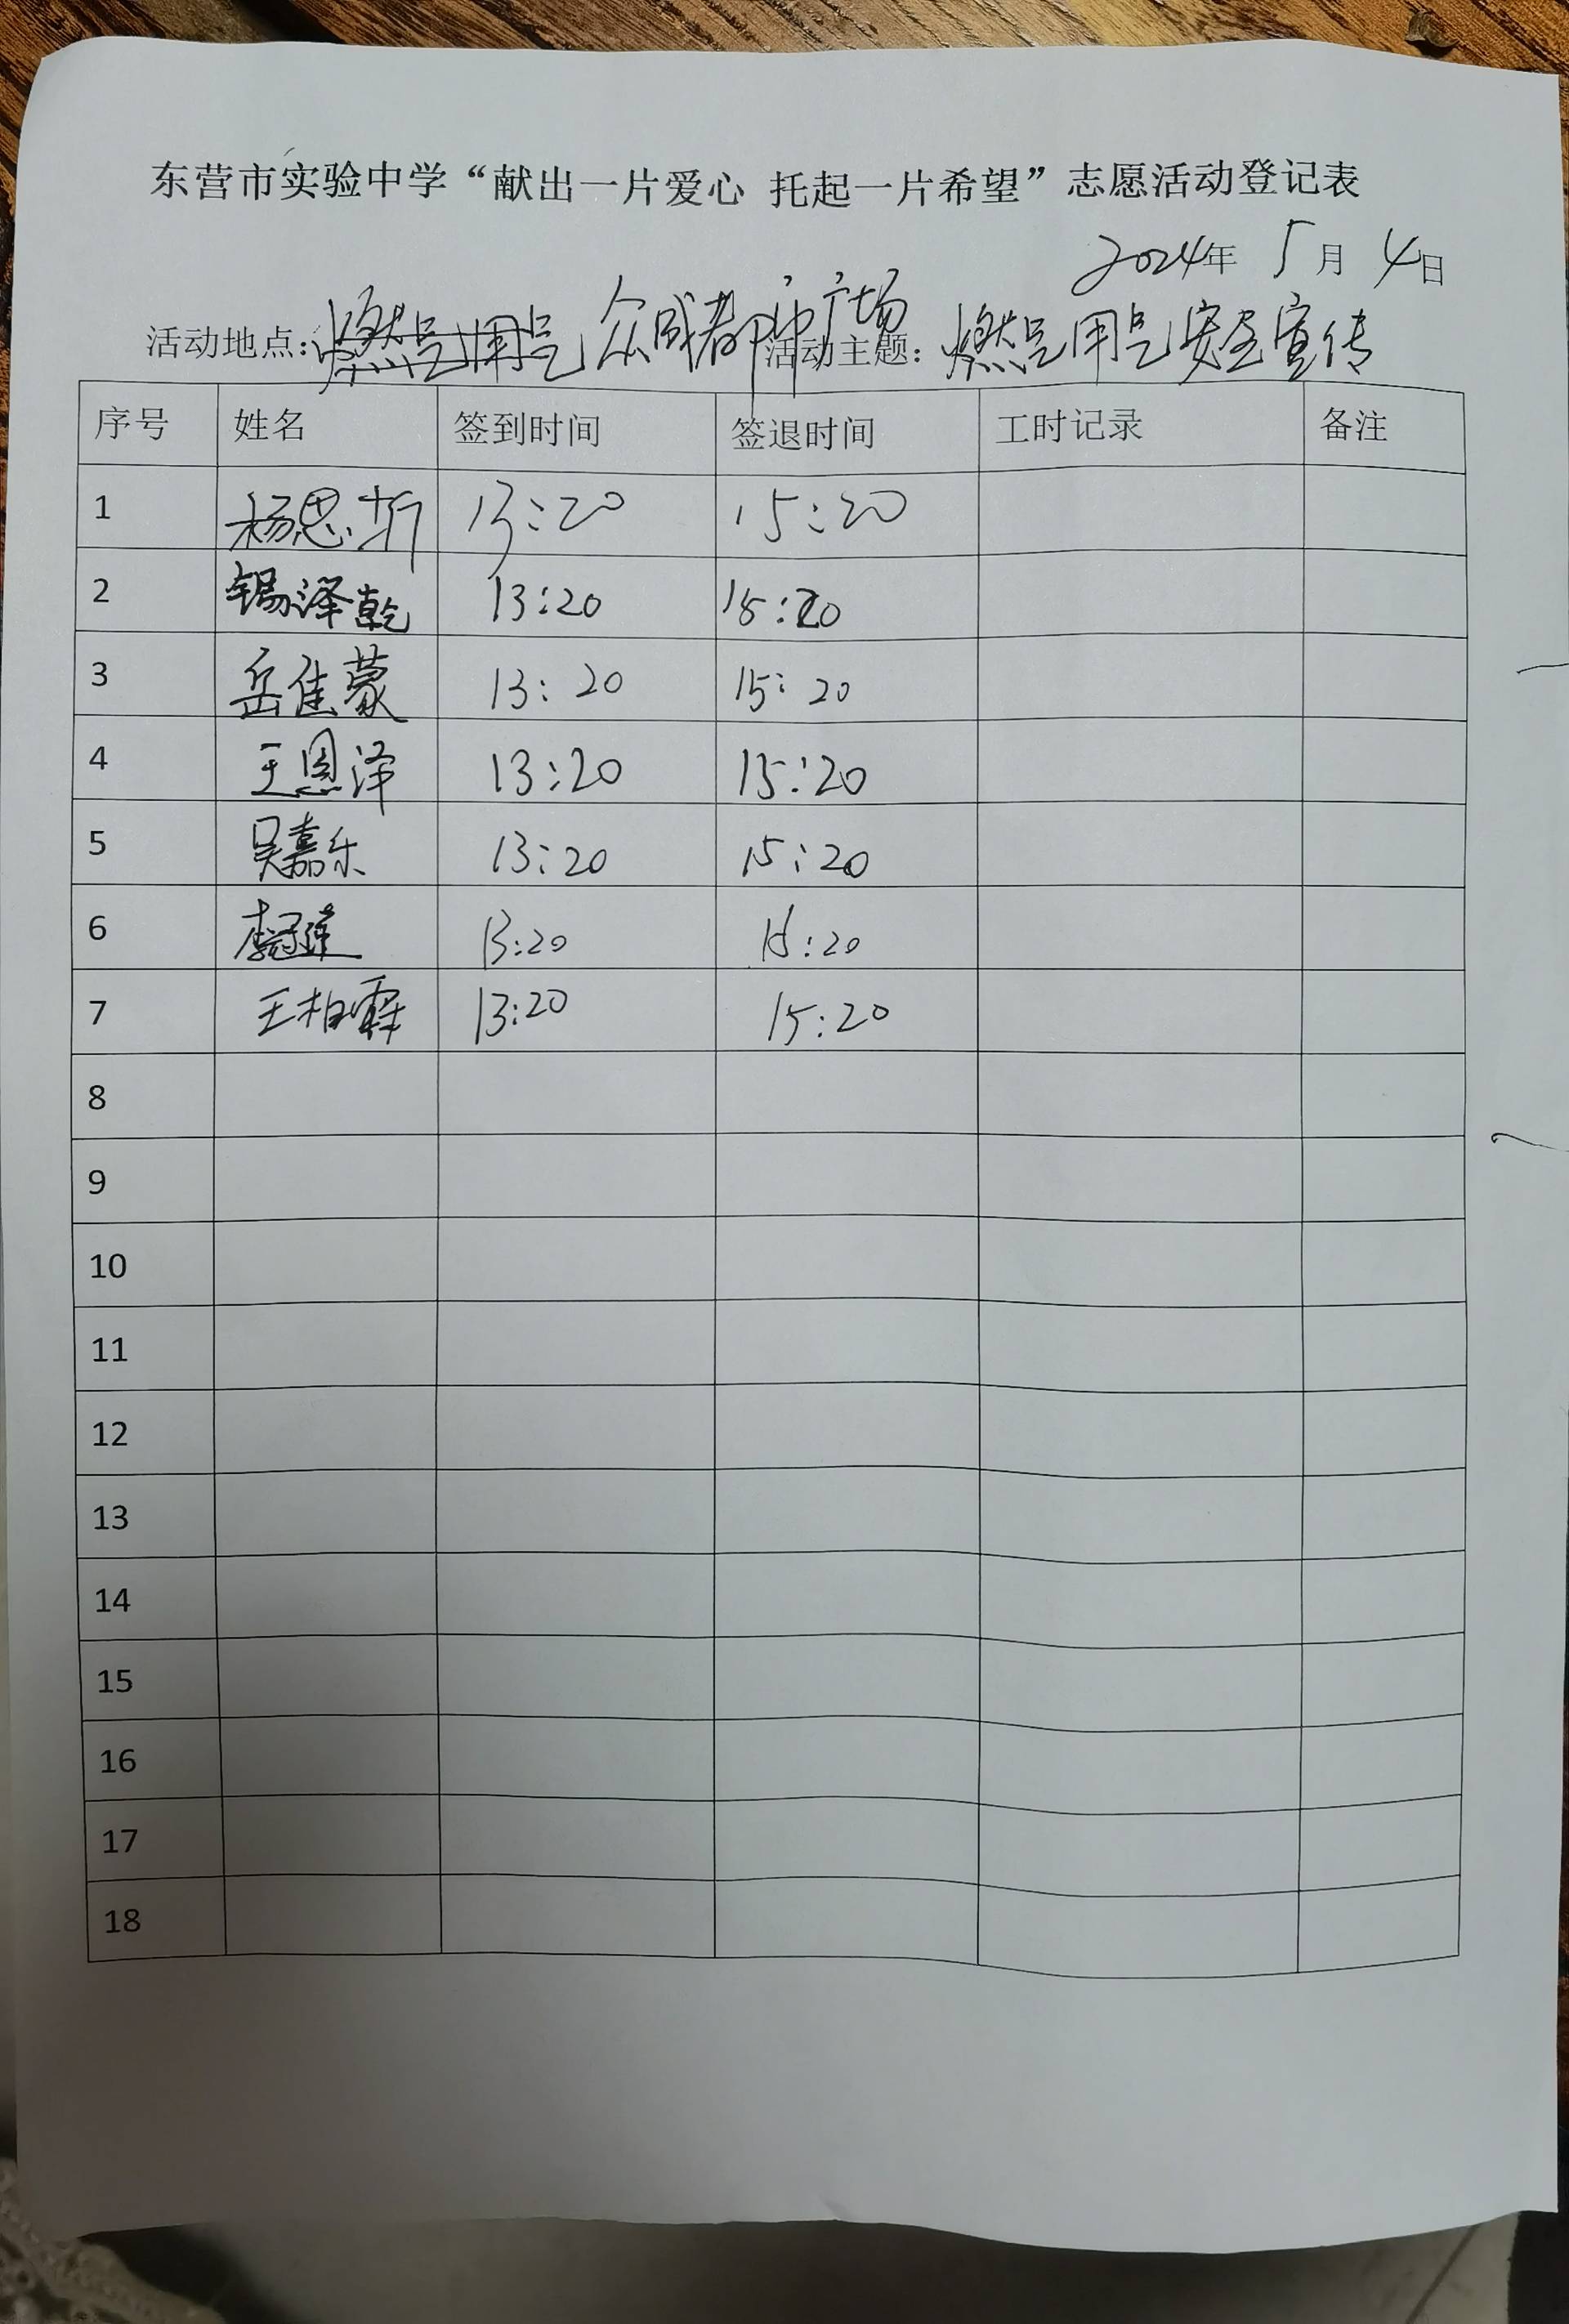 东营市实验中学“献出一片爱心 托起一片希望”志愿活动登记表
2024年 5月 4日
活动地点：燃气用气 众成都市广场 活动主题：燃气用气安全宣传
序号 姓名 签到时间 签退时间 工时记录 备注
1 杨思 13:20 15:20
2 锡泽乾 13:20 15:20
3 岳佳蒙 13:20 15:20
4 王恩泽 13:20 15:20
5 吴嘉乐 13:20 15:20
6 李冠莲 13:20 15:20
7 王柏霖 13:20 15:20
8
9
10
11
12
13
14
15
16
17
18